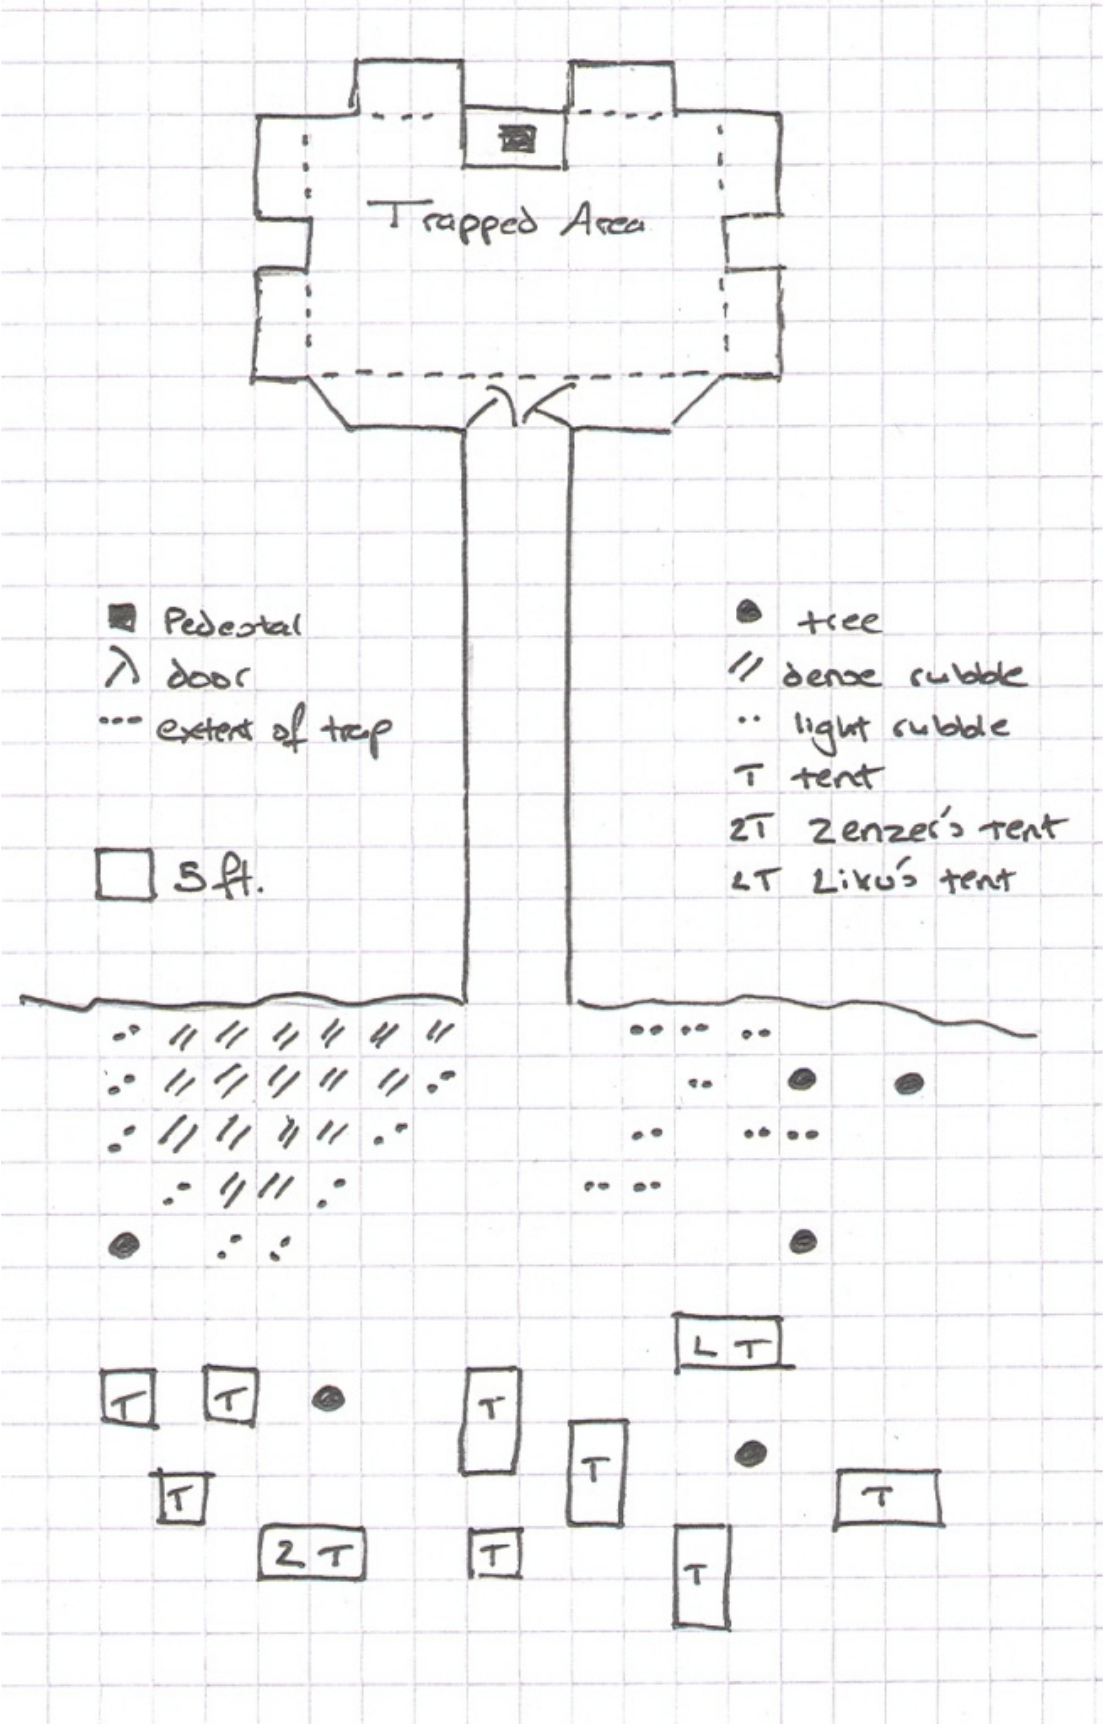 Trapped Area
Pedestal
door
extent of trap
5 ft.
tree
dense rubble
light rubble
T tent
ZT Zenzer's tent
LT Liku's tent
L T
T
T
T
T
T
T
Z T
T
T